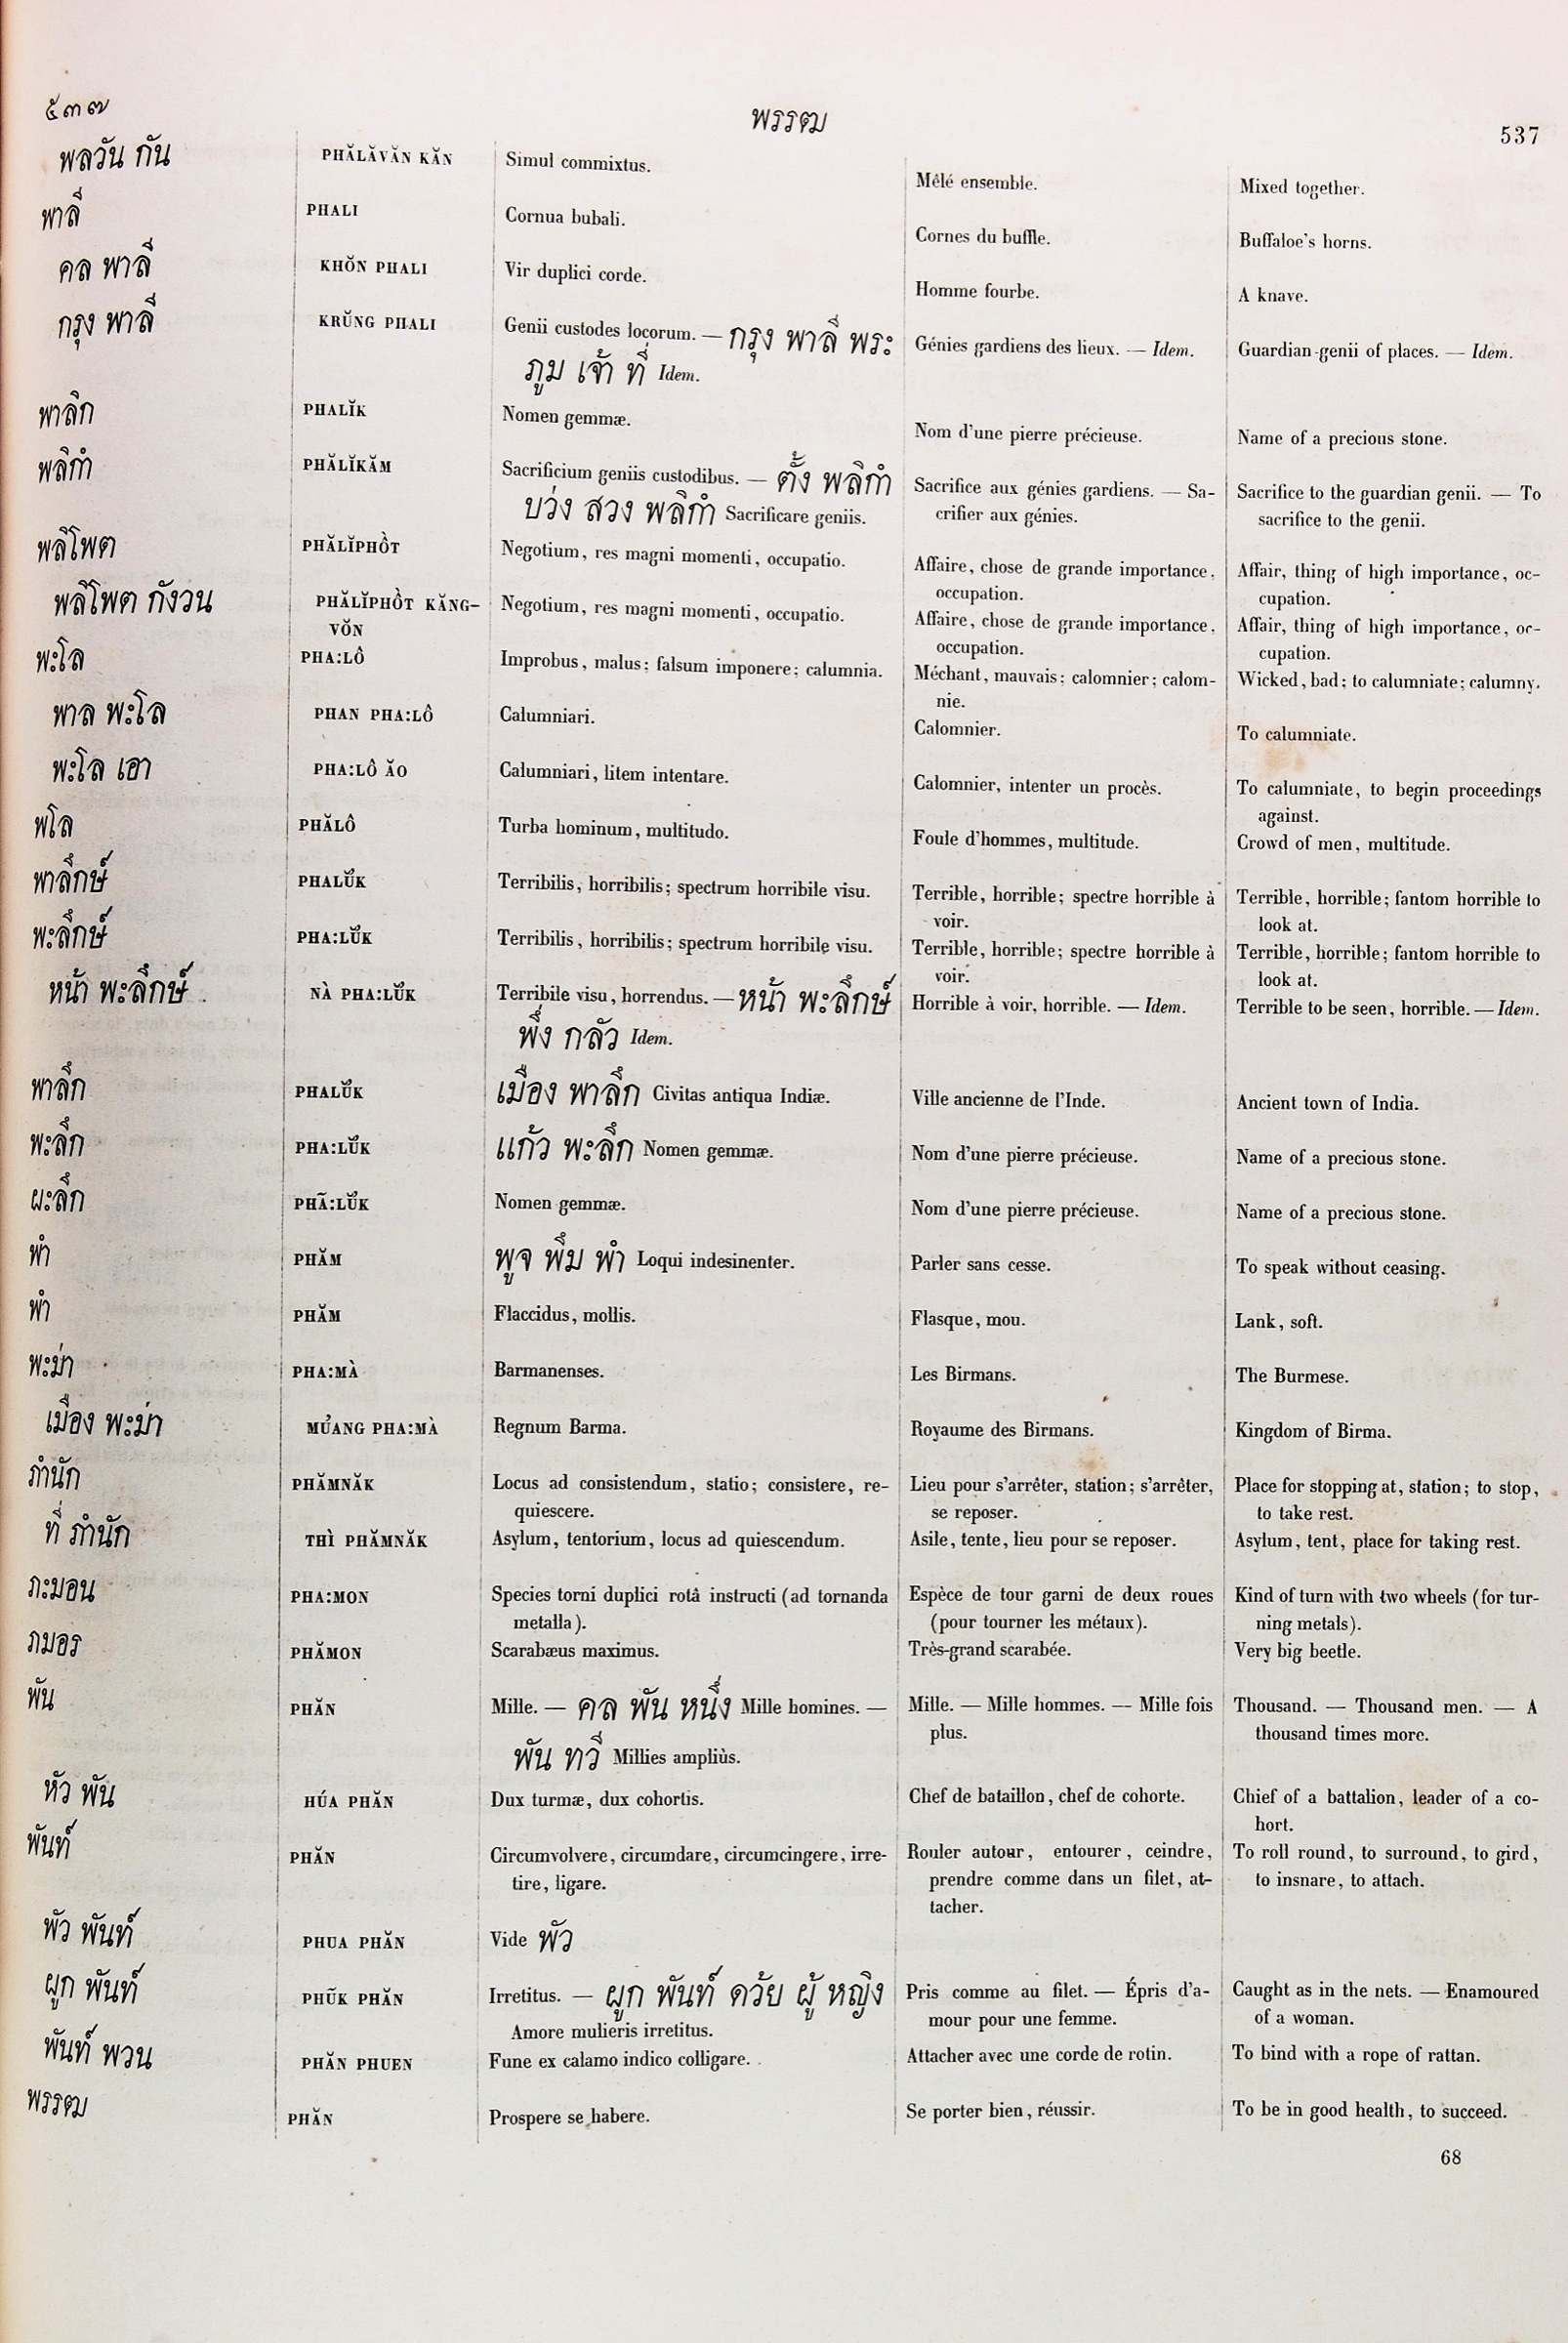 ๕๓๗ พรรฒ 537
พลวัน กัน PHĂLĂVĂN KĂN Simul commixtus. Mêlé ensemble. Mixed together.
พาลี PHALI Cornua bubali. Cornes du buffle. Buffaloe's horns.
คล พาลี KHŎN PHALI Vir duplici corde. Homme fourbe. A knave.
กรุง พาลี KRŬNG PHALI Genii custodes locorum. — กรุง พาลี พระ Génies gardiens des lieux. — Idem. Guardian-genii of places. — Idem.
ภูม เจ้า ที่ Idem.
พาลิก PHALĬK Nomen gemmæ. Nom d'une pierre précieuse. Name of a precious stone.
พลิกำ PHĂLĬKĂM Sacrificium geniis custodibus. — ตั้ง พลิกำ Sacrifice aux génies gardiens. — Sa- Sacrifice to the guardian genii. — To
บว่ง สวง พลิกำ Sacrificare geniis. crifier aux génies. sacrifice to the genii.
พลิโพต PHĂLĬPHÔ̆T Negotium, res magni momenti, occupatio. Affaire, chose de grande importance, Affair, thing of high importance, oc-
occupation. cupation.
พลิโพต กังวน PHĂLĬPHÔ̆T KĂNG- Negotium, res magni momenti, occupatio. Affaire, chose de grande importance, Affair, thing of high importance, oc-
VŎN occupation. cupation.
พะโล PHA:LÔ Improbus, malus; falsum imponere; calumnia. Méchant, mauvais; calomnier; calom- Wicked, bad; to calumniate; calumny.
nie.
พาล พะโล PHAN PHA:LÔ Calumniari. Calomnier. To calumniate.
พะโล เอา PHA:LÔ ĂO Calumniari, litem intentare. Calomnier, intenter un procès. To calumniate, to begin proceedings
against.
พโล PHĂLÔ Turba hominum, multitudo. Foule d'hommes, multitude. Crowd of men, multitude.
พาลึกษ์ PHALŬ̓K Terribilis, horribilis; spectrum horribile visu. Terrible, horrible; spectre horrible à Terrible, horrible; fantom horrible to
voir. look at.
พะลึกษ์ PHA:LŬ̓K Terribilis, horribilis; spectrum horribile visu. Terrible, horrible; spectre horrible à Terrible, horrible; fantom horrible to
voir. look at.
หน้า พะลึกษ์ NÀ PHA:LŬ̓K Terribile visu, horrendus. — หน้า พะลึกษ์ Horrible à voir, horrible. — Idem. Terrible to be seen, horrible. — Idem.
พึ่ง กลัว Idem.
พาลึก PHALŬ̓K เมือง พาลึก Civitas antiqua Indiæ. Ville ancienne de l'Inde. Ancient town of India.
พะลึก PHA:LŬ̓K แก้ว พะลึก Nomen gemmæ. Nom d'une pierre précieuse. Name of a precious stone.
ผะลึก PHÃ:LŬ̓K Nomen gemmæ. Nom d'une pierre précieuse. Name of a precious stone.
พำ PHĂM พูจ พึม พำ Loqui indesinenter. Parler sans cesse. To speak without ceasing.
พำ PHĂM Flaccidus, mollis. Flasque, mou. Lank, soft.
พะม่า PHA:MÀ Barmanenses. Les Birmans. The Burmese.
เมือง พะม่า MU̓ANG PHA:MÀ Regnum Barma. Royaume des Birmans. Kingdom of Birma.
ภำนัก PHĂMNĂK Locus ad consistendum, statio; consistere, re- Lieu pour s'arrêter, station; s'arrêter, Place for stopping at, station; to stop,
quiescere. se reposer. to take rest.
ที่ ภำนัก THÌ PHĂMNĂK Asylum, tentorium, locus ad quiescendum. Asile, tente, lieu pour se reposer. Asylum, tent, place for taking rest.
ภะมอน PHA:MON Species torni duplici rotâ instructi (ad tornanda Espèce de tour garni de deux roues Kind of turn with two wheels (for tur-
metalla). (pour tourner les métaux). ning metals).
ภมอร PHĂMON Scarabæus maximus. Très-grand scarabée. Very big beetle.
พัน PHĂN Mille. — คล พัน หนึ่ง Mille homines. — Mille. — Mille hommes. — Mille fois Thousand. — Thousand men. — A
พัน ทวี Millies ampliùs. plus. thousand times more.
หัว พัน HÚA PHĂN Dux turmæ, dux cohortis. Chef de bataillon, chef de cohorte. Chief of a battalion, leader of a co-
hort.
พันท์ PHĂN Circumvolvere, circumdare, circumcingere, irre- Rouler autour, entourer, ceindre, To roll round, to surround, to gird,
tire, ligare. prendre comme dans un filet, at- to insnare, to attach.
tacher.
พัว พันท์ PHUA PHĂN Vide พัว
ผูก พันท์ PHŨK PHĂN Irretitus. — ผูก พันท์ ดว้ย ผู้ หญิง Pris comme au filet. — Épris d'a- Caught as in the nets. — Enamoured
Amore mulieris irretitus. mour pour une femme. of a woman.
พันท์ พวน PHĂN PHUEN Fune ex calamo indico colligare. Attacher avec une corde de rotin. To bind with a rope of rattan.
พรรฒ PHĂN Prospere se habere. Se porter bien, réussir. To be in good health, to succeed.
68